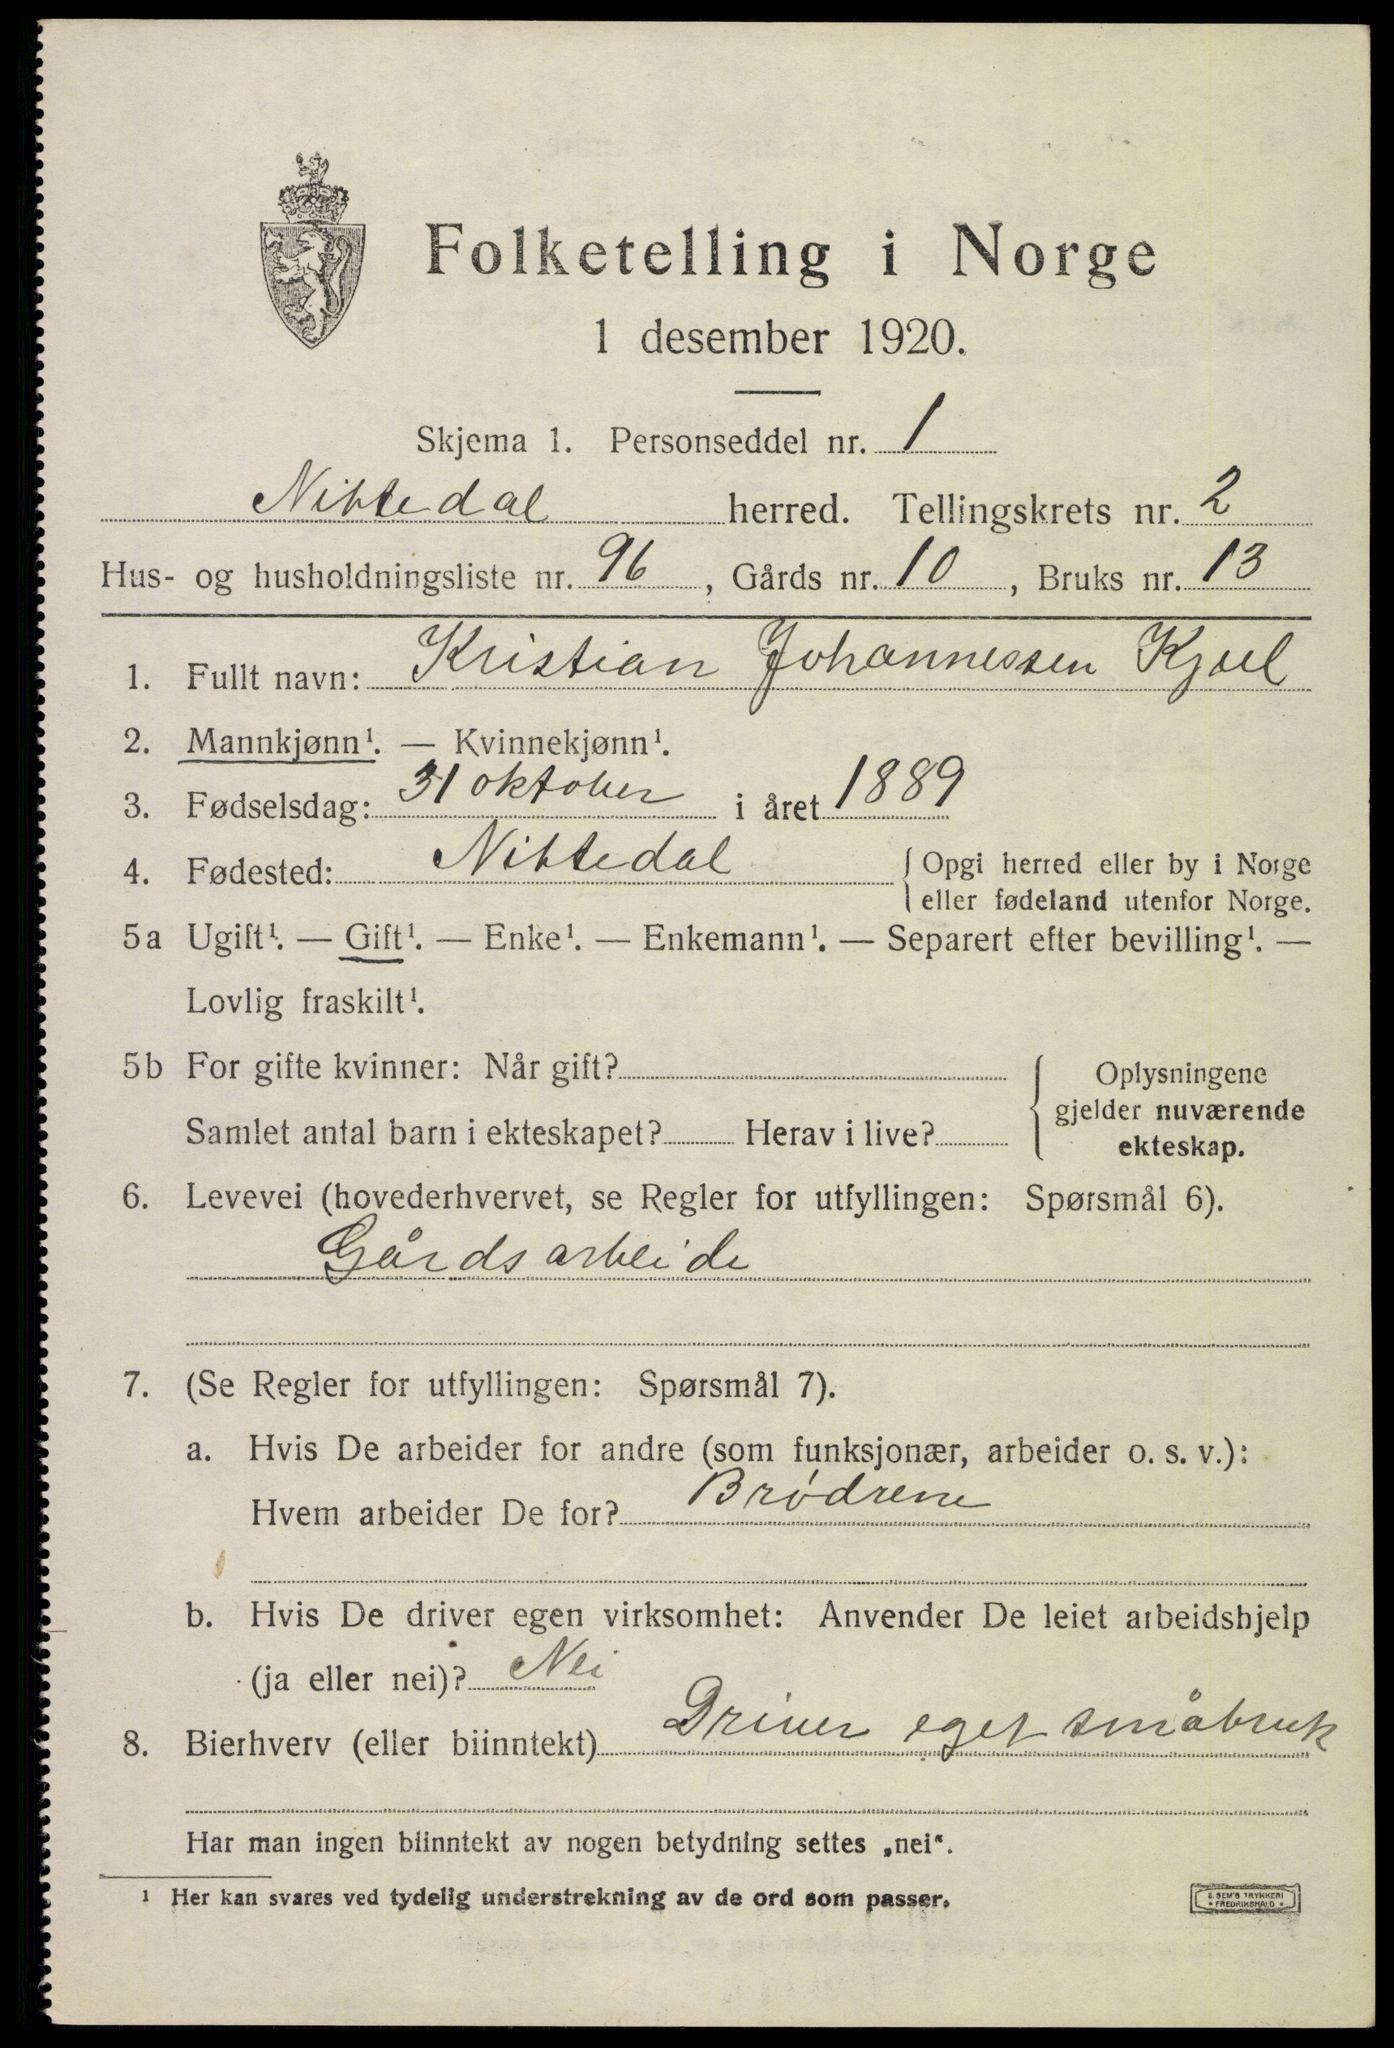 Folketelling i Norge
1 desember 1920.
Skjema 1. Personseddel nr. 1
Nittedal herred. Tellingskrets nr. 2
Hus- og husholdningsliste nr. 96, Gårds nr. 10, Bruks nr. 13
1. Fullt navn: Kristian Johannessen Kjoel
2. Mannkjønn¹. — Kvinnekjønn¹.
3. Fødselsdag: 31 oktober i året 1889
4. Fødested: Nittedal { Opgi herred eller by i Norge
eller fødeland utenfor Norge.
5a Ugift¹. — Gift¹. — Enke¹. — Enkemann¹. — Separert efter bevilling¹. —
Lovlig fraskilt¹.
5b For gifte kvinner: Når gift?
Samlet antal barn i ekteskapet? Herav i live?
Oplysningene
gjelder nuværende
ekteskap.
6. Levevei (hovederhvervet, se Regler for utfyllingen: Spørsmål 6).
Gårdsarbeide
7. (Se Regler for utfyllingen: Spørsmål 7).
a. Hvis De arbeider for andre (som funksjonær, arbeider o. s. v.):
Hvem arbeider De for? Brødrene
b. Hvis De driver egen virksomhet: Anvender De leiet arbeidshjelp
(ja eller nei)? Nei
8. Bierhverv (eller biinntekt) Driver eget småbruk
Har man ingen biinntekt av nogen betydning settes „nei“.
¹ Her kan svares ved tydelig understrekning av de ord som passer.
E. SEM'S TRYKKERI
FREDRIKSHALD